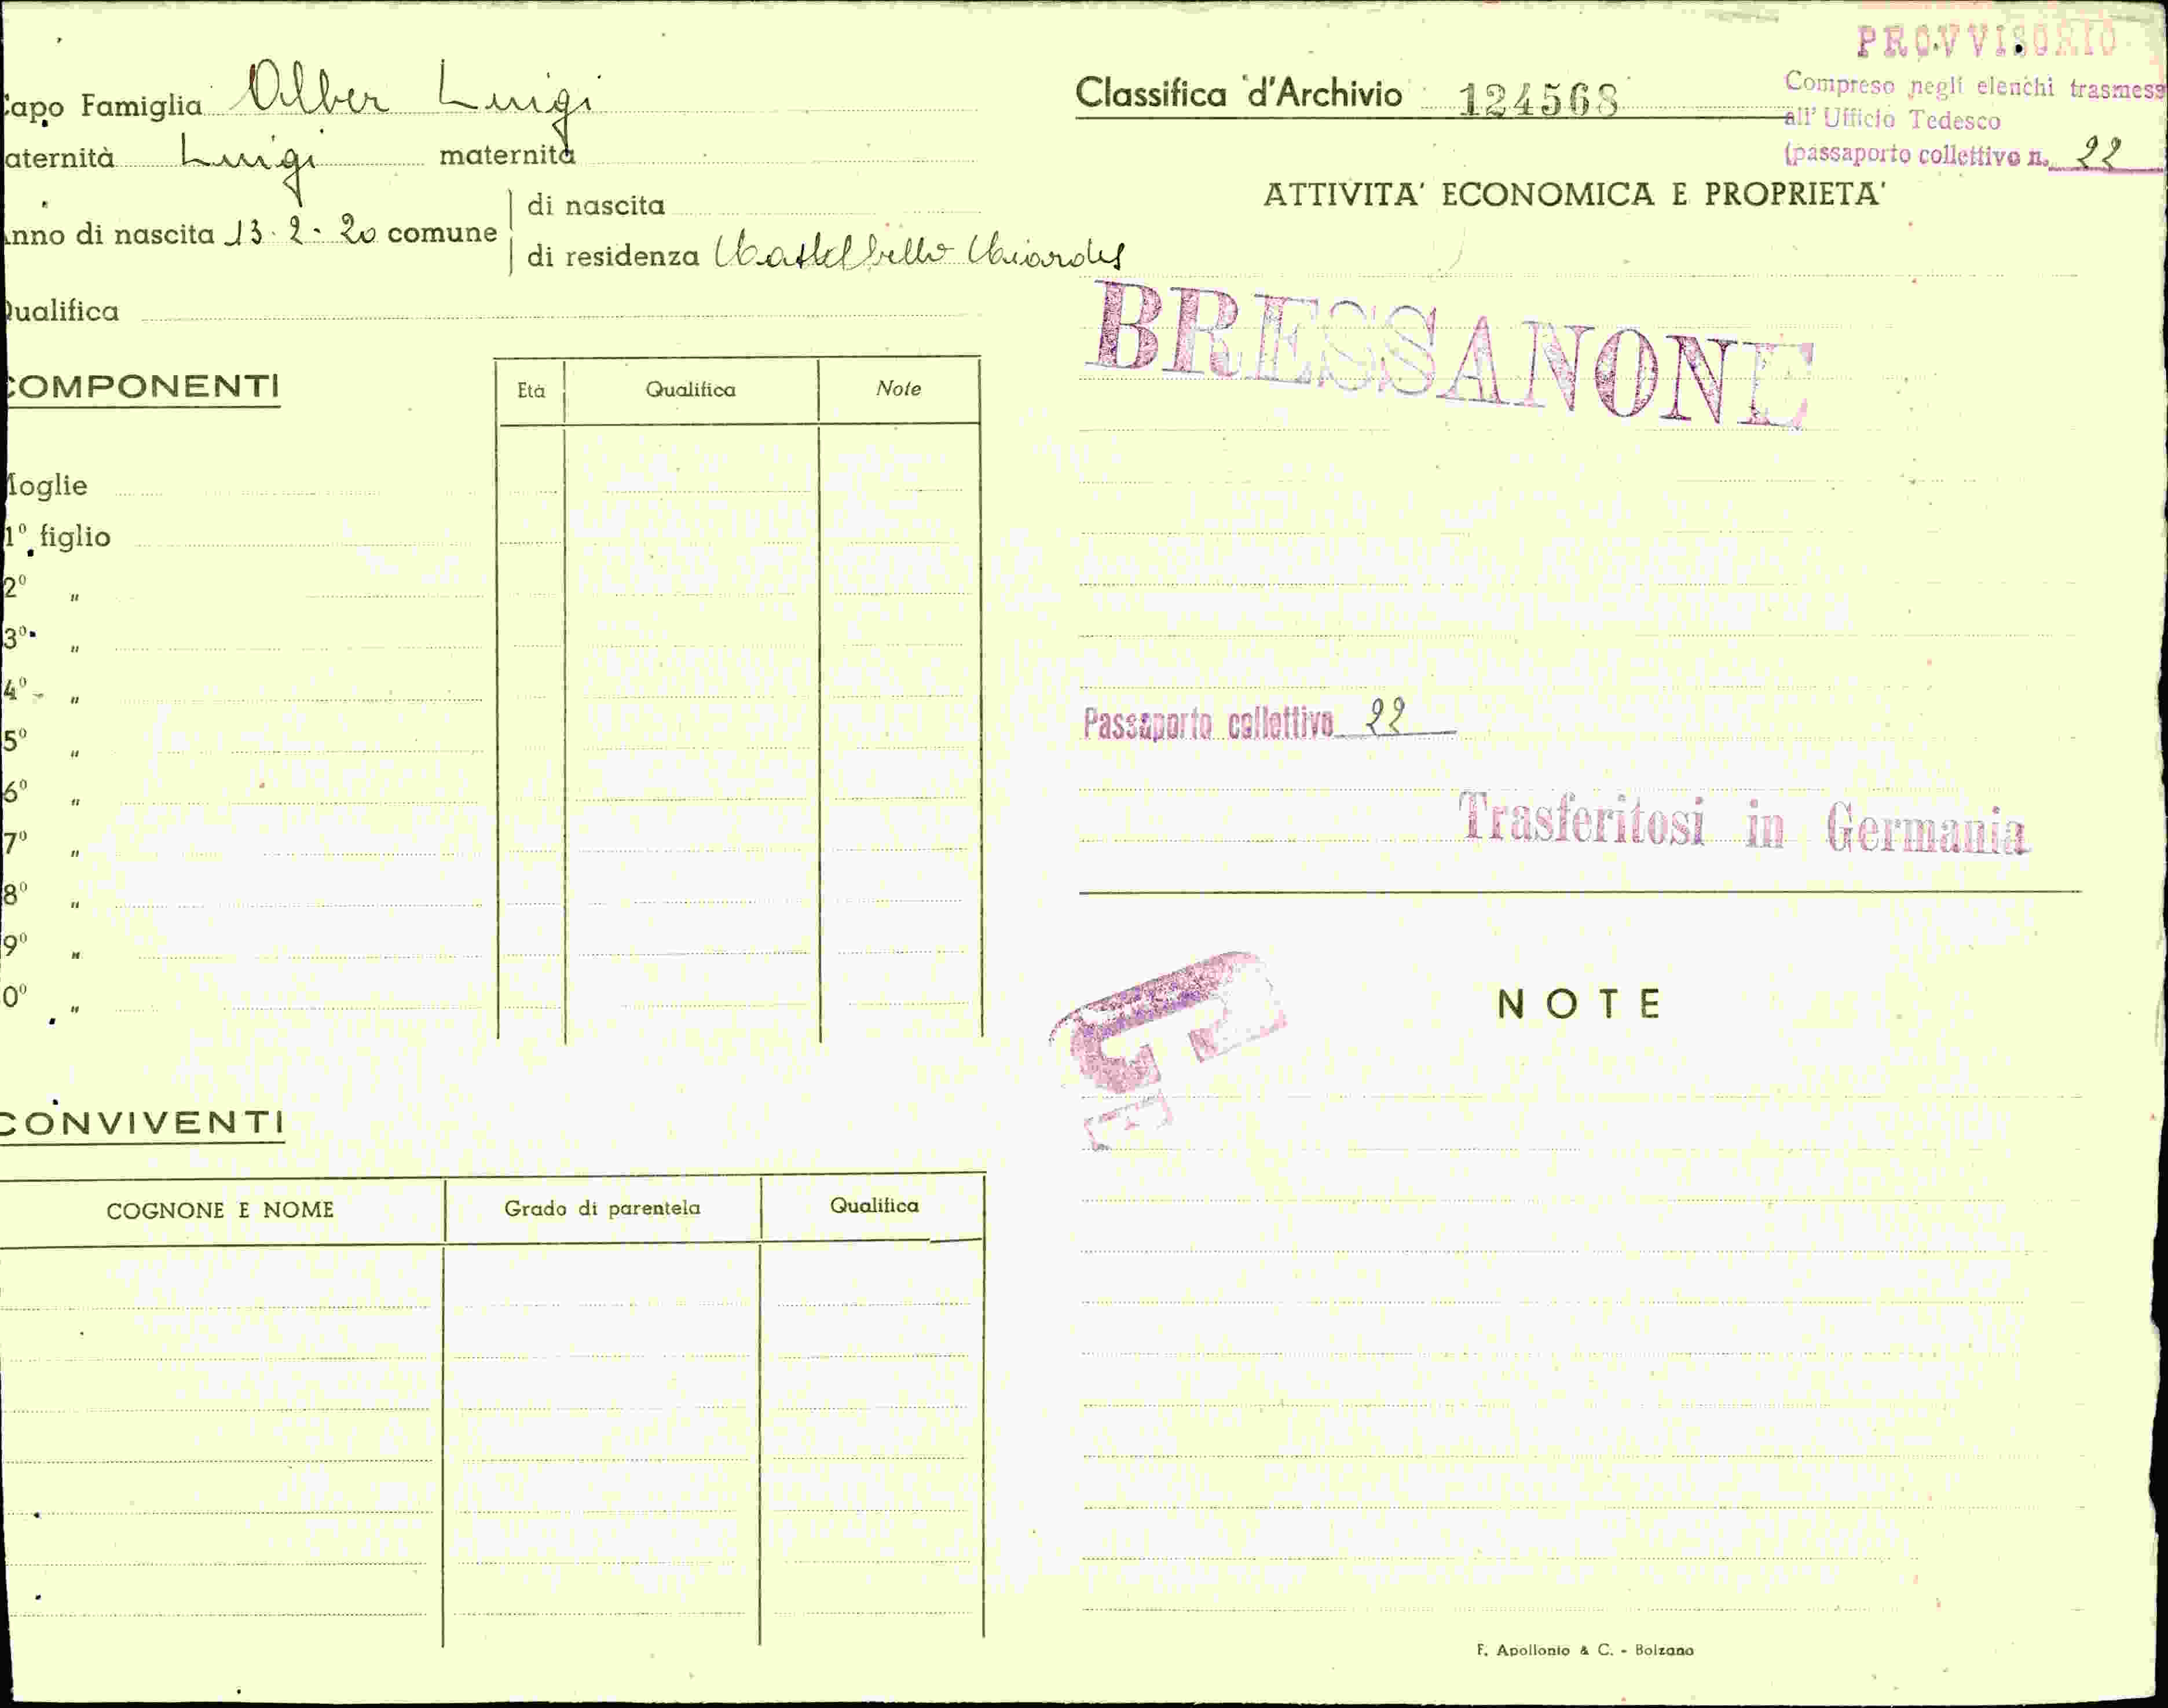 Capo Famiglia Alber Luigi
Paternità Luigi maternità
Anno di nascita 13.2.20 comune
di nascita
di residenza Castelbello Ciardes
Qualifica
COMPONENTI
Età Qualifica Note
Moglie
1º figlio
2º "
3º "
4º "
5º "
6º "
7º "
8º "
9º "
0º "
CONVIVENTI
COGNONE E NOME Grado di parentela Qualifica
PROVVISORIO
Classifica d'Archivio 124568
Compreso negli elenchi trasmess
all' Ufficio Tedesco
(passaporto collettivo n. 22
ATTIVITA' ECONOMICA E PROPRIETA'
BRESSANONE
Passaporto collettivo 22
Trasferitosi in Germania
NOTE
F. Apollonio & C. - Bolzano